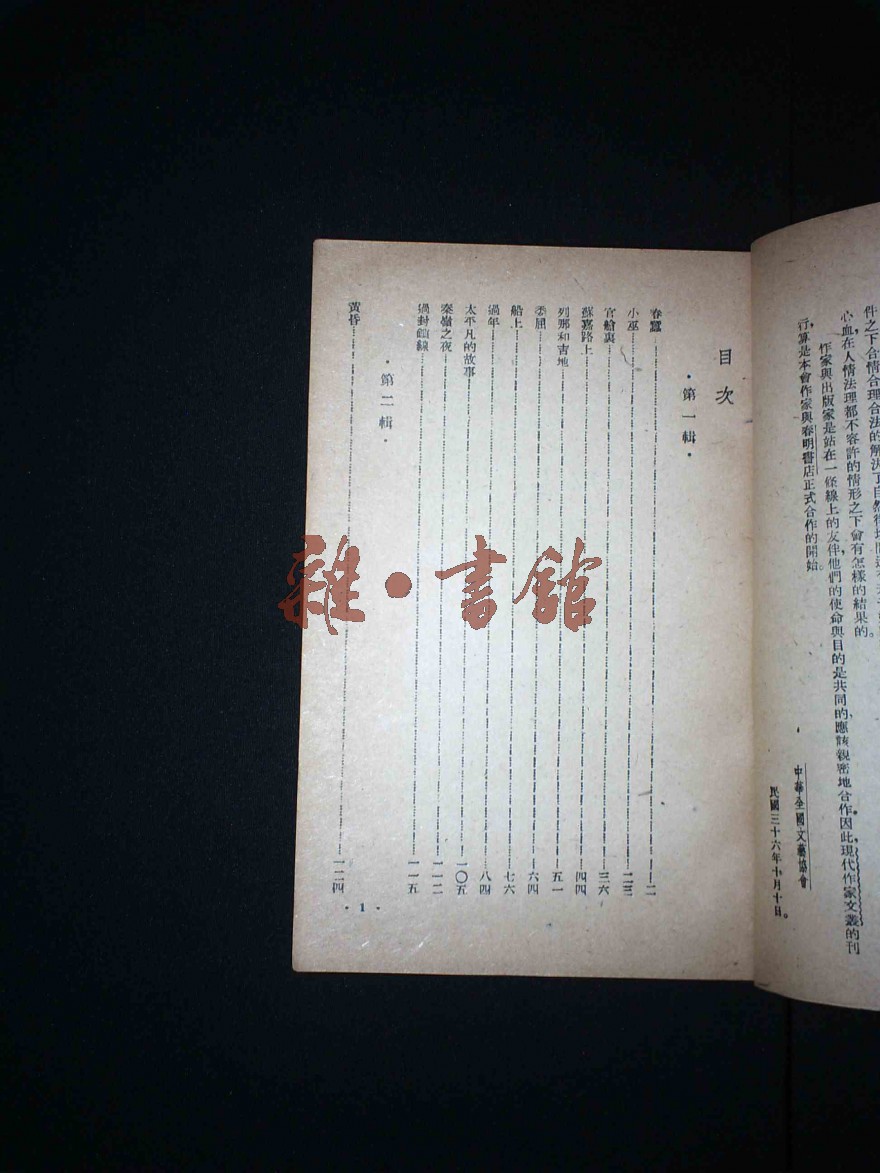 心血在人情法理都不容許的情形之下會有怎樣的結果的。
作家與出版家是站在一條線上的友伴他們的使命與目的是共同的，應該親密地合作因此，現代作家文叢的刊
行，算是本會作家與春明書店正式合作的開始。
中華全國文藝協會
民國三十六年十月十日。
目次
·第一輯·
春蠶……二
小巫……二三
官艙裏……三六
蘇嘉路上……四四
列那和吉地……五一
委屈……六四
船上……七六
過年……八四
太平凡的故事……一〇五
秦嶺之夜……一一二
過封鎖線……一一五
·第二輯·
黃昏……一二四
·1·
雜·書館